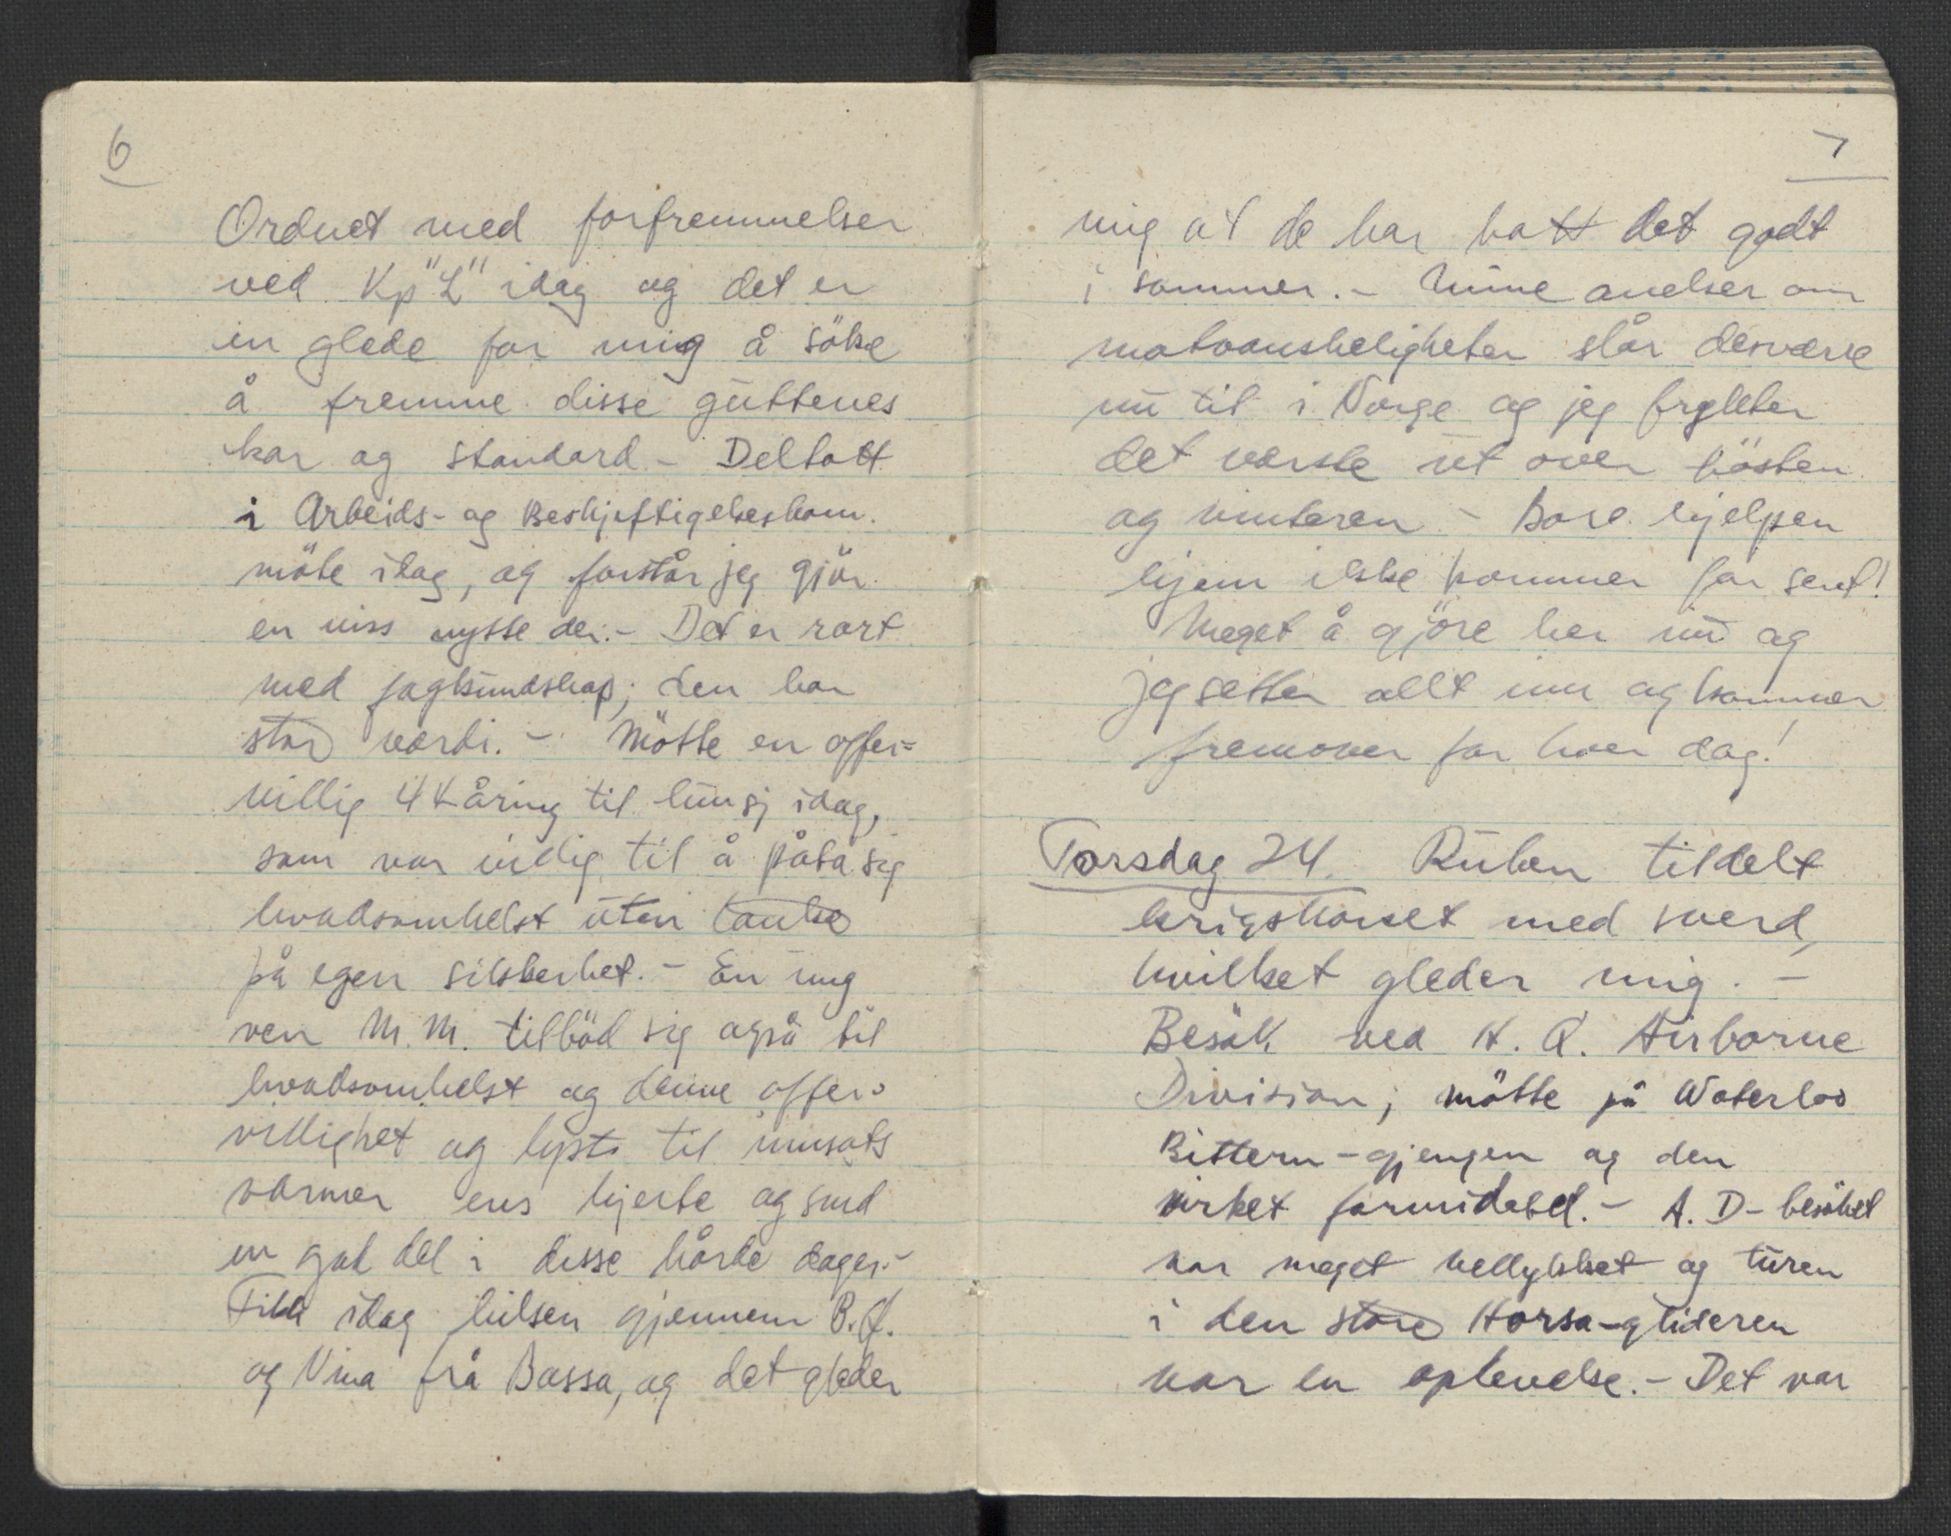 6
Ordnet med forfremmelser
ved Kp "L" idag og det er
en glede for mig å söke
å fremme disse guttenes
kar og standard - Deltatt
i Arbeids- og Beskjeftigelseskom.
möte idag, og forstår jeg gjör
en viss nytte der. - Det er rart
med fagkundskap; den har
stor værdi. - Mötte en offer=
villig 44 åring til lunsj idag,
som var villig til å påta sig
hvadsomhelst uten tanke
på egen sikkerhet. - En ung
venn M.M. tilböd sig også til
hvadsomhelst og denne offer=
villighet og lyst til innsats
varmer ens hjerte og sind
en god del i disse hårde dager. -
Fikk idag hilsen gjennem B.Ø.
og Nina frå Bassa, og det gleder
7
mig at de har hatt det godt
i sommer. - Mine anelser om
matvanskeligheter slår desværre
nu til i Norge og jeg frykter
det værste ut over hösten
og vinteren - Bare hjelpen
hjem ikke kommer for sent!
Meget å gjöre her nu og
jeg setter allt inn og kommer
fremover for hver dag!
Torsdag 24. Ruben tildelt
krigskorset med sverd,
hvilket gleder mig. -
Besök ved H.Q. Airborne
Division; mötte på Waterloo
Bittern-gjengen og den
virket formidabel. - A.D-besöket
var meget vellykket og turen
i den store Horsa-glideren
var en oplevelse. - Det var